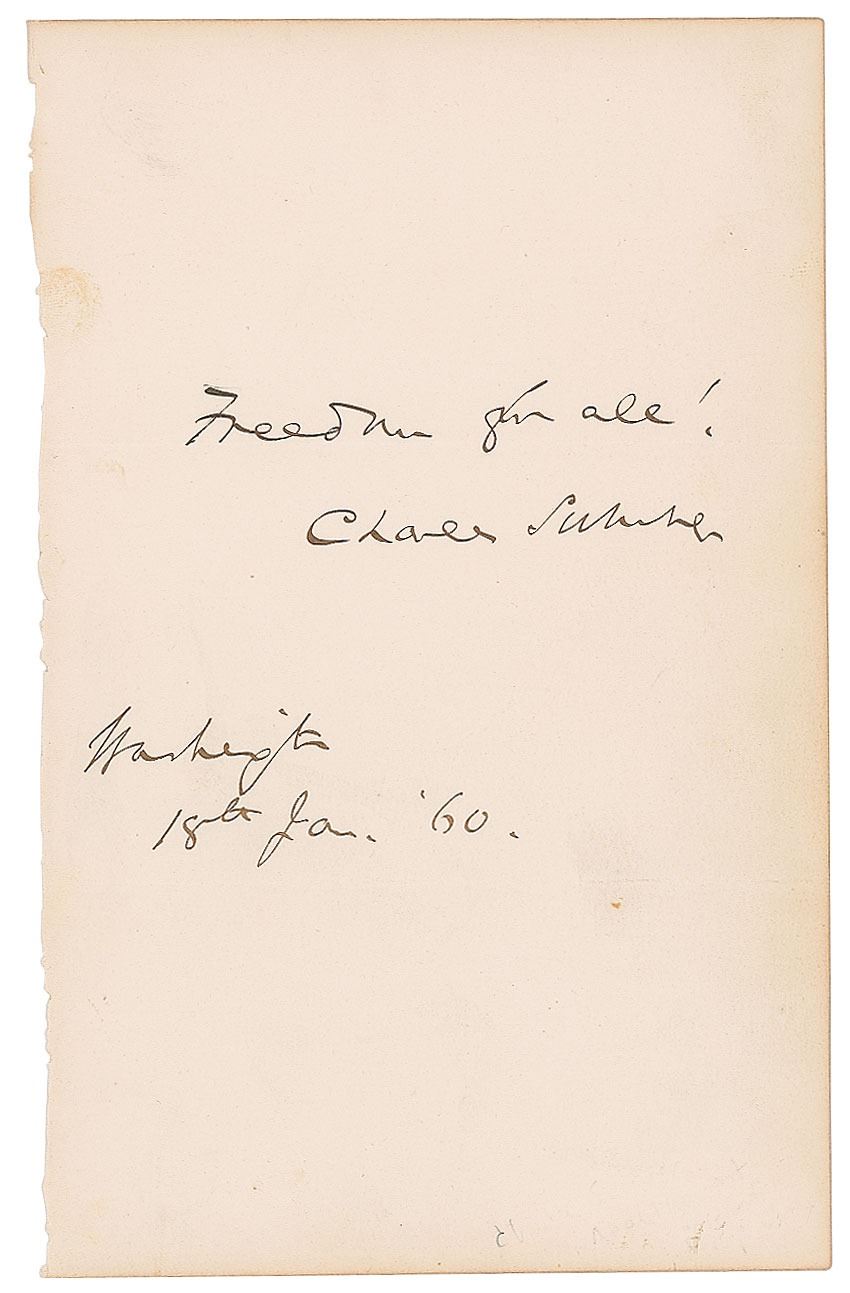 Freedom for all!
Charles Sumner
Washington
18th Jan. '60.